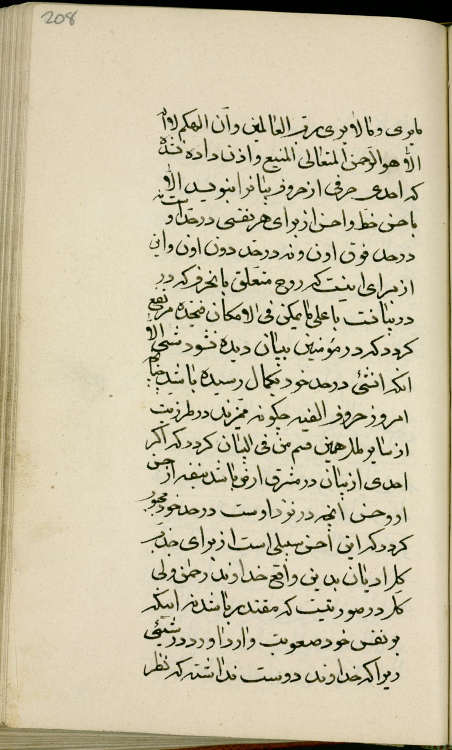 208
مایری و مالایری رب العالمین و آن الهکم لا اله
الا هو الرحمن المتعالی المنیع و اذن داده نشده
که احدی حرفی از حروف بیانرا بنویسد الا
باحسن خط و احسن از برای هر نفسی در حد او
در حد فوق اون و نه در حد دون اون و این
از برای اینست که روح متعلق بانحرف که در
در بیانست باعلی مایمکن فی الامکان
کردد که در مؤمنین ببیان دیده نشود شیئی الا
انکه انشئ در حد خود بکمال رسیده باشد
امروز حروف الفیه چکونه در طرزیت
از سایر ملل همین قسم من فی البیان کردد که اکر
احدی از بیان در مشرق ارض باشد بنفسه از
او و حسن انچه در نزد اوست در حد خود محبوب
کردد که این احسن سبیلی است از برای جذب
کل ادیان بدین واقع خداوند رحمن ولی
کل در صورتیست که مقتدر باشد نه اینکه
بر نفس خود صعوبت وارد اورد در شیئی
زیرا که خداوند دوست نداشته که نظر